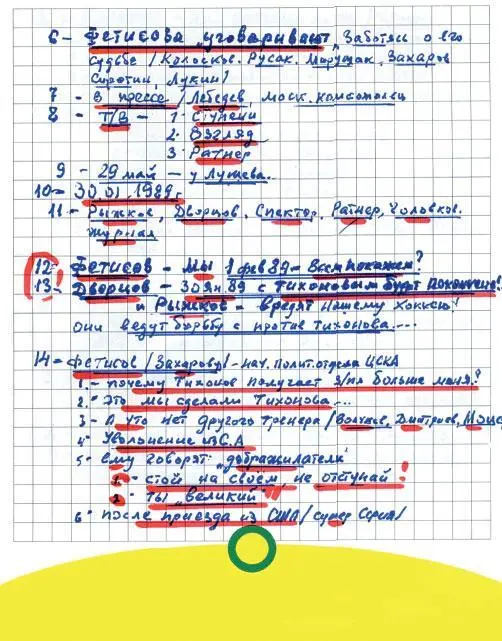 6 - Фетисова "уговаривают", Заботясь о его
судьбе / Колосков. Русак. Марущак, Захаров
Сиротин, Лукин /
7 - В прессе / Лебедев, моск. комсомолец
8 - Т/В - 1. Ступени
2. Взгляд
3. Ратнер
9 - 29 май - у Лужева.
10 - 30.01.1989г.
11 - Рыжков, Дворцов, Спектор, Ратнер, Чоловков.
журнал
12 - Фетисов - мы 1 фев 89 - Всем покажем?
13 - Дворцов - 30 ян. 89 с Тихоновым будет покончено!
и Рыжков - вредят нашему хоккею!
Они ведут борьбу с против Тихонова...
14 - Фетисов / Захарову / - нач. полит. отдела ЦСКА
1. - почему Тихонов получает з/пл больше меня?
2. - Это мы сделали Тихонова...
3 - А что нет другого тренера / Волчков, Дмитриев,
4. Увольнение из С.А
5. ему говорят "доброжилатели"
1. - стой на своём, не отступай!
2. Ты "великий"
6. после приезда из США / супер Серия /